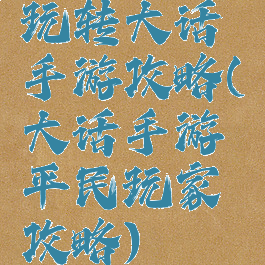 玩转大话
手游攻略(
大话手游
平民玩家
攻略)